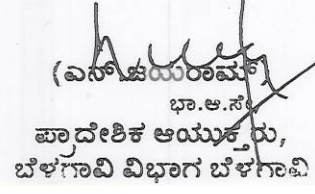 (ಎನ್ ಜಯರಾಮ್)
ಭಾ.ಆ.ಸೇ
ಪ್ರಾದೇಶಿಕ ಆಯುಕ್ತರು,
ಬೆಳಗಾವಿ ವಿಭಾಗ ಬೆಳಗಾವಿ